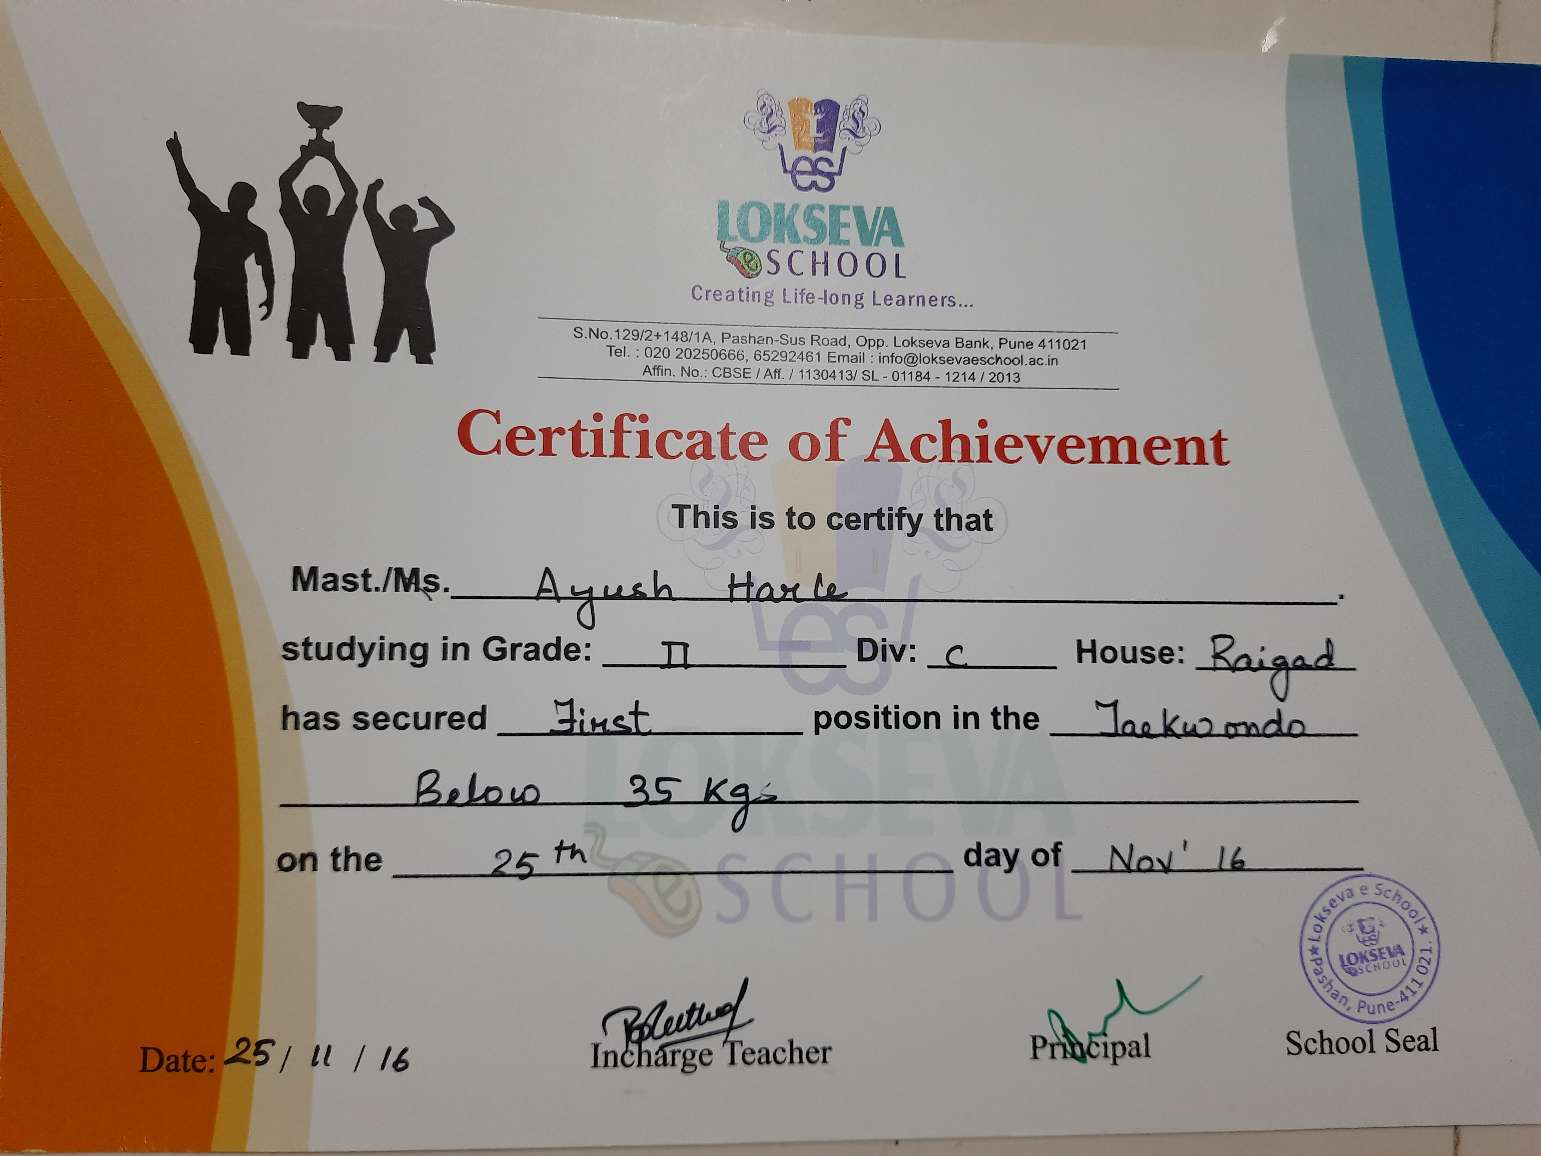 LOKSEVA
e SCHOOL
Creating Life-long Learners...
S.No.129/2+148/1A, Pashan-Sus Road, Opp. Lokseva Bank, Pune 411021
Tel. : 020 20250666, 65292461 Email : info@loksevaeschool.ac.in
Affin. No.: CBSE / Aff. / 1130413/ SL - 01184 - 1214 / 2013
Certificate of Achievement
This is to certify that
Mast./Ms. Ayush Harle.
studying in Grade: II Div: C House: Raigad
has secured First position in the Taekwondo
Below 35 Kgs
on the 25th day of Nov' 16
Lokseva e School
LOKSEVA
e SCHOOL
Pashan, Pune-411 021.
Date: 25 / 11 / 16 Incharge Teacher Principal School Seal